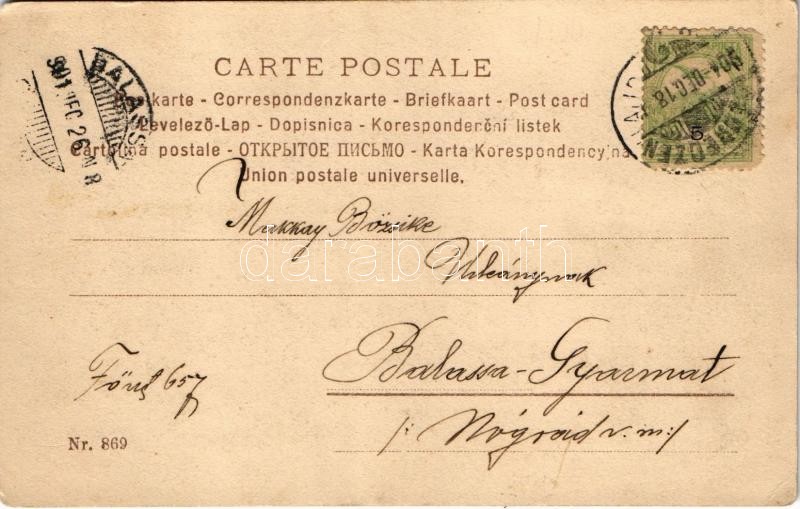 CARTE POSTALE
Postkarte - Correspondenzkarte - Briefkaart - Post card
Levelezö-Lap - Dopisnica - Korespondenční listek
Cartolina postale - ОТКРЫТОЕ ПИСЬМО - Karta Korespondencyjna
Union postale universelle.
BALASSA
DEC 26 N 8
904-DEC.18
5
Makkay Bözsike
Urleánynak
darabanth
Balassa-Gyarmat
/: Nógrád v. m :/
Föút 657
Nr. 869